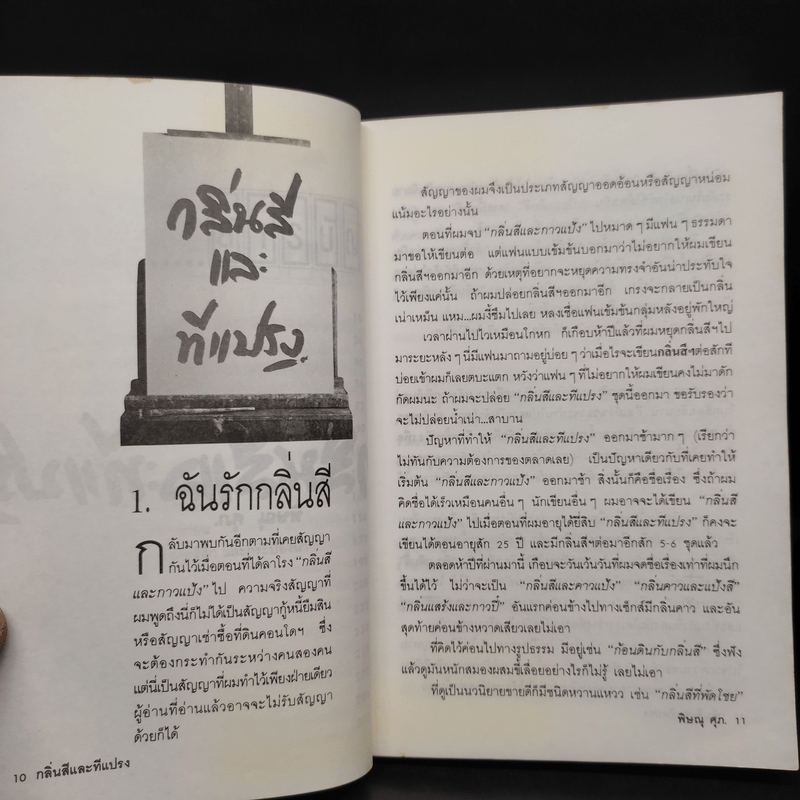 กลิ่นสี
และ
ทีแปรง
1. ฉันรักกลิ่นสี
กลับมาพบกันอีกตามที่เคยสัญญา
กันไว้เมื่อตอนที่ได้ลาโรง "กลิ่นสี
และกาวแป้ง" ไป ความจริงสัญญาที่
ผมพูดถึงนี่ก็ไม่ได้เป็นสัญญากู้หนี้ยืมสิน
หรือสัญญาเช่าซื้อที่ดินคอนโดฯ ซึ่ง
จะต้องกระทำกันระหว่างคนสองคน
แต่นี่เป็นสัญญาที่ผมทำไว้เพียงฝ่ายเดียว
ผู้อ่านที่อ่านแล้วอาจจะไม่รับสัญญา
ด้วยก็ได้
10 กลิ่นสีและทีแปรง
สัญญาของผมจึงเป็นประเภทสัญญาออดอ้อนหรือสัญญาหน่อม
แน้มอะไรอย่างนั้น
ตอนที่ผมจบ "กลิ่นสีและกาวแป้ง" ไปหมาด ๆ มีแฟน ๆ ธรรมดา
มาขอให้เขียนต่อ แต่แฟนแบบเข้มข้นบอกมาว่าไม่อยากให้ผมเขียน
กลิ่นสีฯออกมาอีก ด้วยเหตุที่อยากจะหยุดความทรงจำอันน่าประทับใจ
ไว้เพียงแค่นั้น ถ้าผมปล่อยกลิ่นสีฯออกมาอีก เกรงจะกลายเป็นกลิ่น
เน่าเหม็น แหม...ผมงี้ซึมไปเลย หลงเชื่อแฟนเข้มข้นกลุ่มหลังอยู่พักใหญ่
เวลาผ่านไปไวเหมือนโกหก ก็เกือบห้าปีแล้วที่ผมหยุดกลิ่นสีฯไป
มาระยะหลัง ๆ นี่มีแฟนมาถามอยู่บ่อย ๆ ว่าเมื่อไรจะเขียนกลิ่นสีฯต่อสักที
บ่อยเข้าผมก็เลยตบะแตก หวังว่าแฟน ๆ ที่ไม่อยากให้ผมเขียนคงไม่มาดัก
กัดผมนะ ถ้าผมจะปล่อย "กลิ่นสีและทีแปรง" ชุดนี้ออกมา ขอรับรองว่า
จะไม่ปล่อยน้ำเน่า...สาบาน
ปัญหาที่ทำให้ "กลิ่นสีและทีแปรง" ออกมาช้ามาก ๆ (เรียกว่า
ไม่ทันกับความต้องการของตลาดเลย) เป็นปัญหาเดียวกับที่เคยทำให้
เริ่มต้น "กลิ่นสีและกาวแป้ง" ออกมาช้า สิ่งนั้นก็คือชื่อเรื่อง ซึ่งถ้าผม
คิดชื่อได้เร็วเหมือนคนอื่น ๆ นักเขียนอื่น ๆ ผมอาจจะได้เขียน "กลิ่นสี
และกาวแป้ง" ไปเมื่อตอนที่ผมอายุได้ยี่สิบ "กลิ่นสีและทีแปรง" ก็คงจะ
เขียนได้ตอนอายุสัก 25 ปี และมีกลิ่นสีฯต่อมาอีกสัก 5-6 ชุดแล้ว
ตลอดห้าปีที่ผ่านมานี้ เกือบจะวันเว้นวันที่ผมจดชื่อเรื่องเท่าที่ผมนึก
ขึ้นได้ไว้ ไม่ว่าจะเป็น "กลิ่นสีและคาวแป้ง" "กลิ่นคาวและแป้งสี"
"กลิ่นแสร้งและกาวปี๋" อันแรกค่อนข้างไปทางเซ็กส์มีกลิ่นคาว และอัน
สุดท้ายค่อนข้างหวาดเสียวเลยไม่เอา
ที่คิดไว้ค่อนไปทางรูปธรรม มีอยู่เช่น "ก้อนดินกับกลิ่นสี" ซึ่งฟัง
แล้วดูมันหนักสมองผสมขี้เลื่อยอย่างไรก็ไม่รู้ เลยไม่เอา
ที่ดูเป็นนวนิยายขายดีก็มีชนิดหวานแหวว เช่น "กลิ่นสีที่พัดโชย"
พิษณุ ศุภ. 11